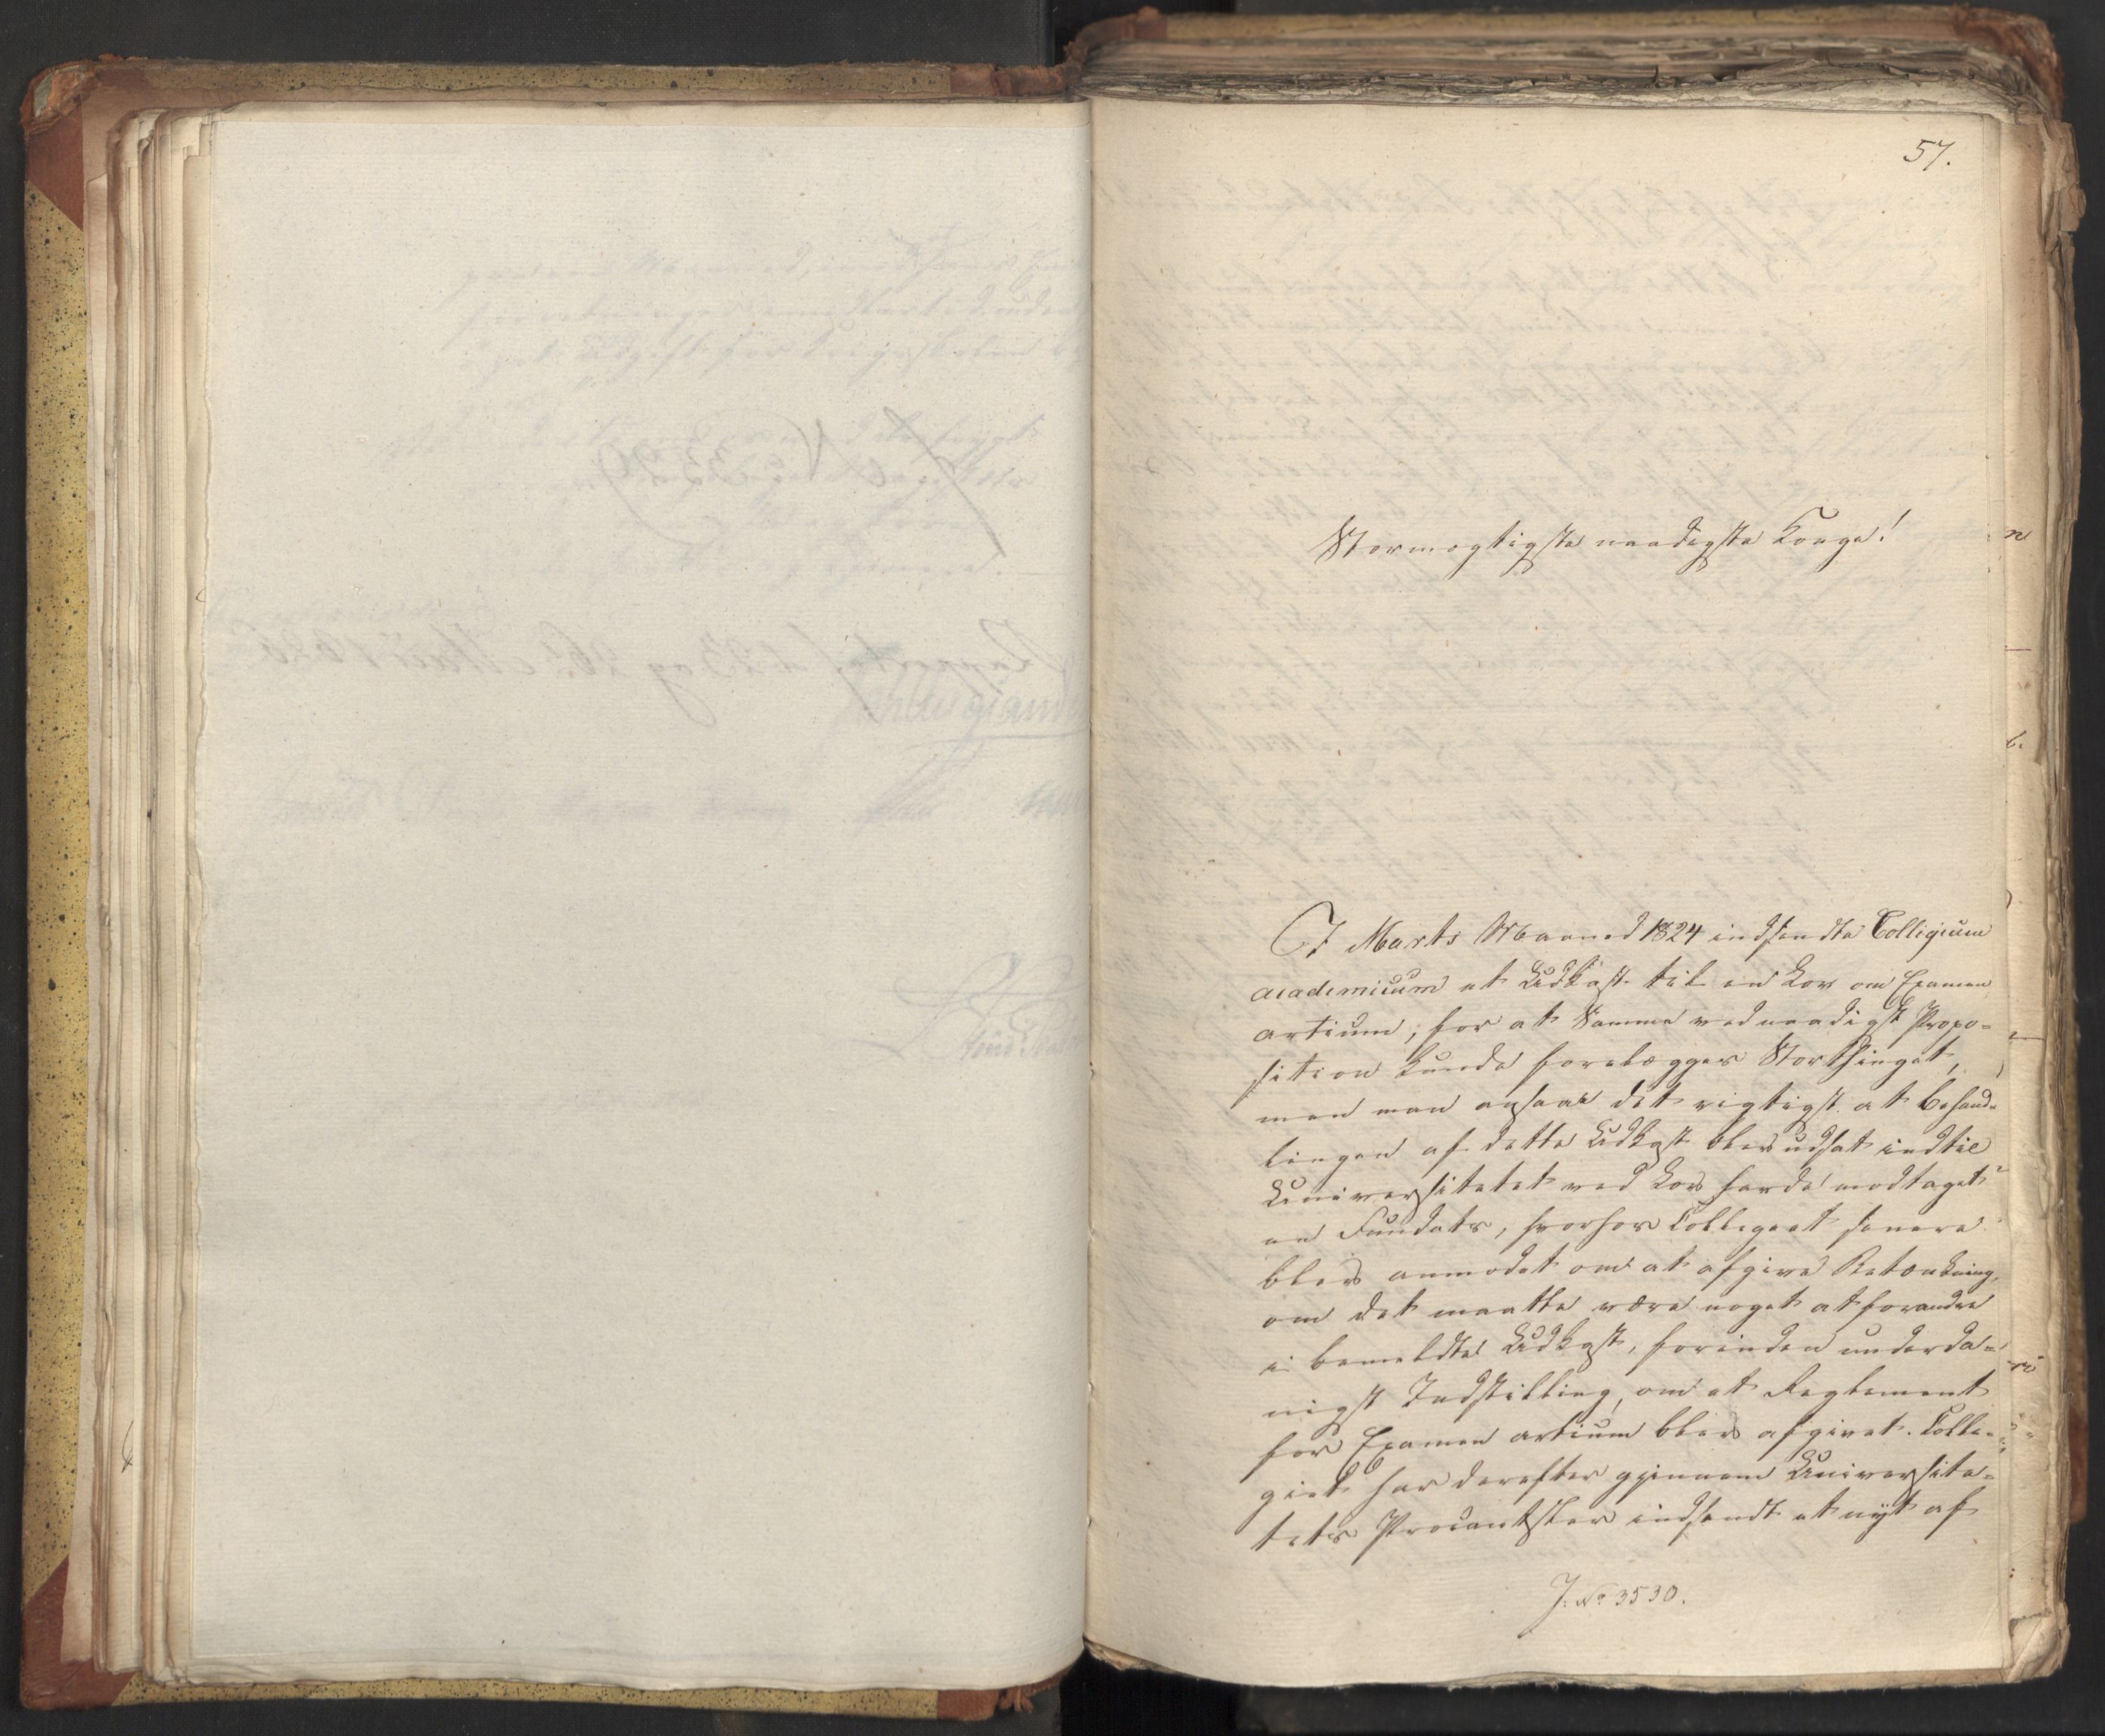 57.
Stormægtigste naadigste Konge!
I Marts Maaned 1824 indsendte Collegium
academicum et Udkast til en Lov om Examen
artium, for at Samme ved naadigst Propo-
sition kunde forelægges Storthinget,
men man ansaae det rigtigst at Behand-
lingen af dette Udkast blev udsat indtil
Universitetet ved Lov havde modtaget
en Fundats, hvorfor Collegiet senere
blev anmodet om at afgive Betænkning,
om det maatte være noget at forandre
i bemeldte Udkast, forinden underda-
nigst Indstilling, om et Reglement
for Examen artium blev afgivet. Colle-
giet har derefter gjennem Universite-
tets Procantsler indsendt et nyt af
J. No 3530.